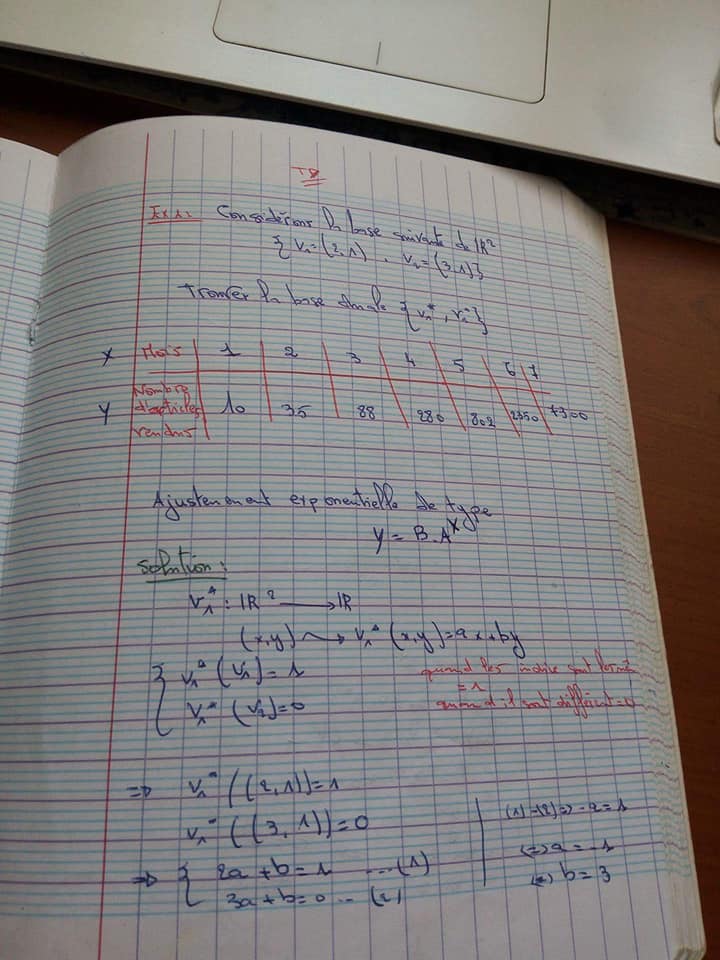 TD
Ex 1: Considérons la base suivante de IR²
{ V₁=(2,1) , V₂=(3,1)}
Trouver la base duale {V₁*, V₂*}
X Mois 1 2 3 4 5 6 7
Y Nombre d'articles vendus 10 35 88 280 802 2350 7300
Ajustement exponentielle de type
Y = B.A^X
Solution :
V₁* : IR² → IR
(x,y) ⟿ V₁*(x,y)=ax+by
{ V₁*(V₁)=1
V₁*(V₂)=0
quand les indice sont
= 1
quand il sont différent = 0
⇒ V₁*((2,1))=1
V₁*((3,1))=0
⇒ { 2a+b=1 ...(1)
3a+b=0 ...(2)
(1)-(2)⇒ -a=1
⇔ a=-1
⇔ b=3